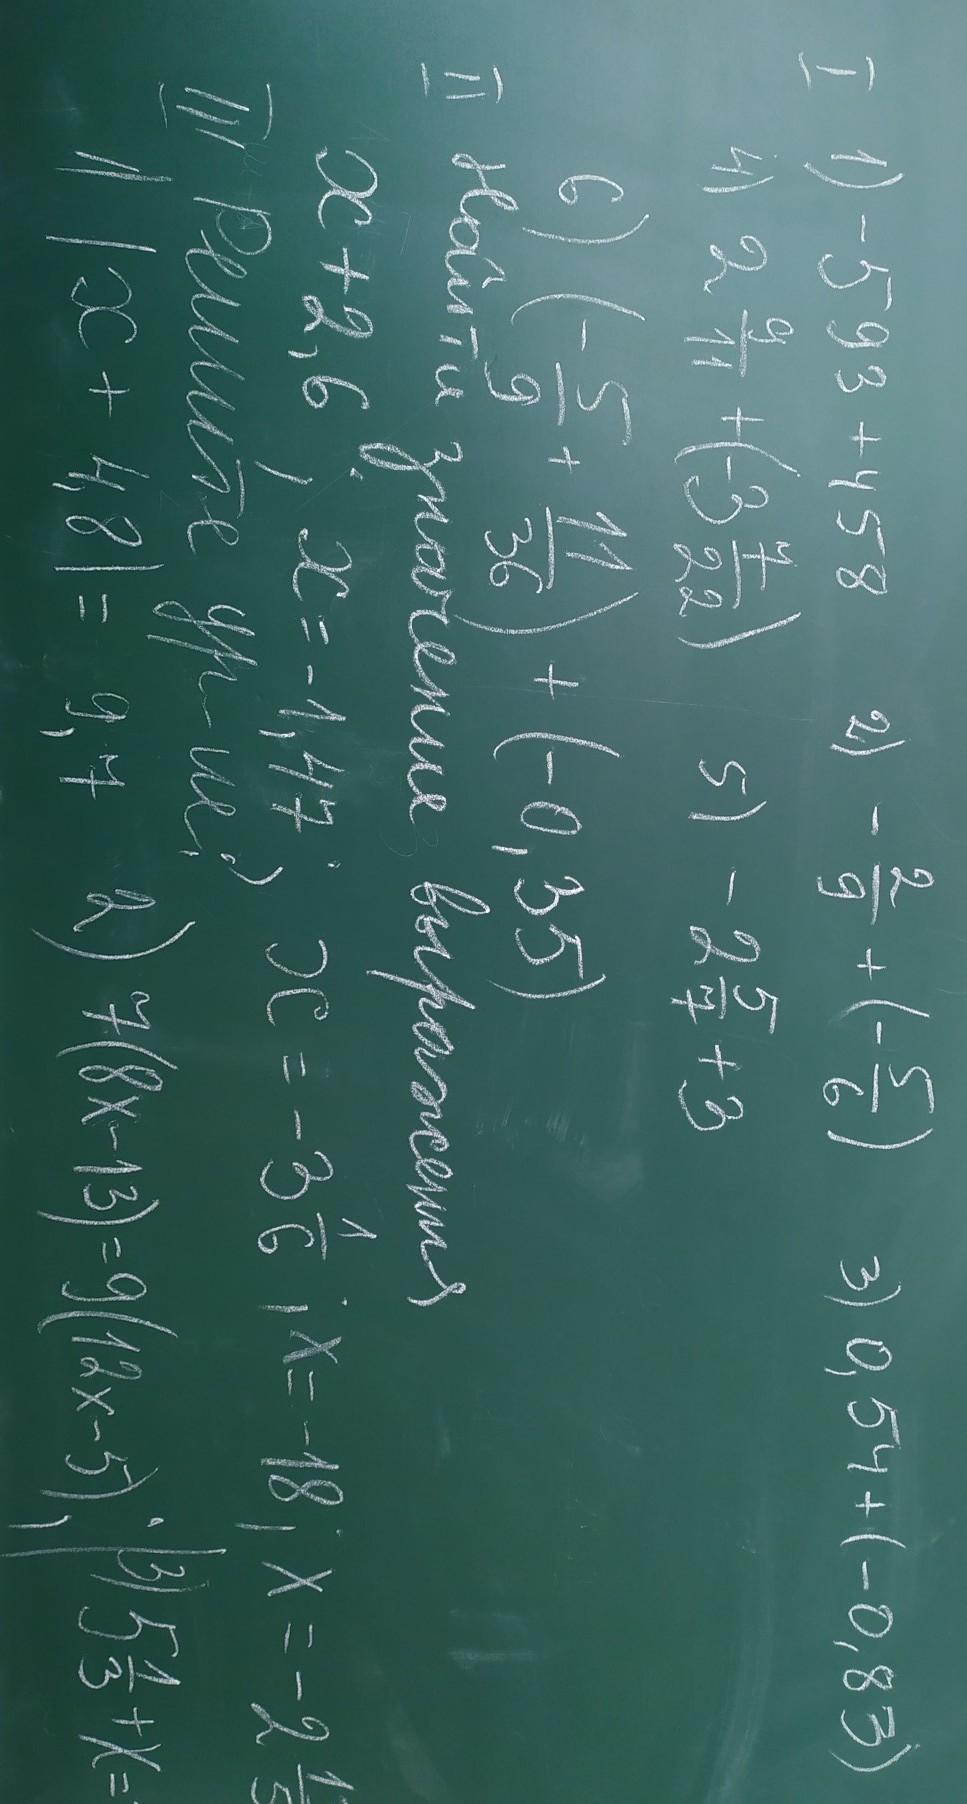 I 1) -593+458 2) -2/9+(-5/6) 3) 0,54+(-0,83)
4) 2 9/11+(-3 7/22) 5) -2 5/7+3
6) (-5/9+11/36)+(-0,35)
II Найти значение выражения
x+2,6, x=-1,47; x=-3 1/6; x=-18; x=-2
III Решите ур-ие;
1) |x+4,8|=9,7 2) 7(8x-13)=9(12x-5); 3) 5 1/3+x=